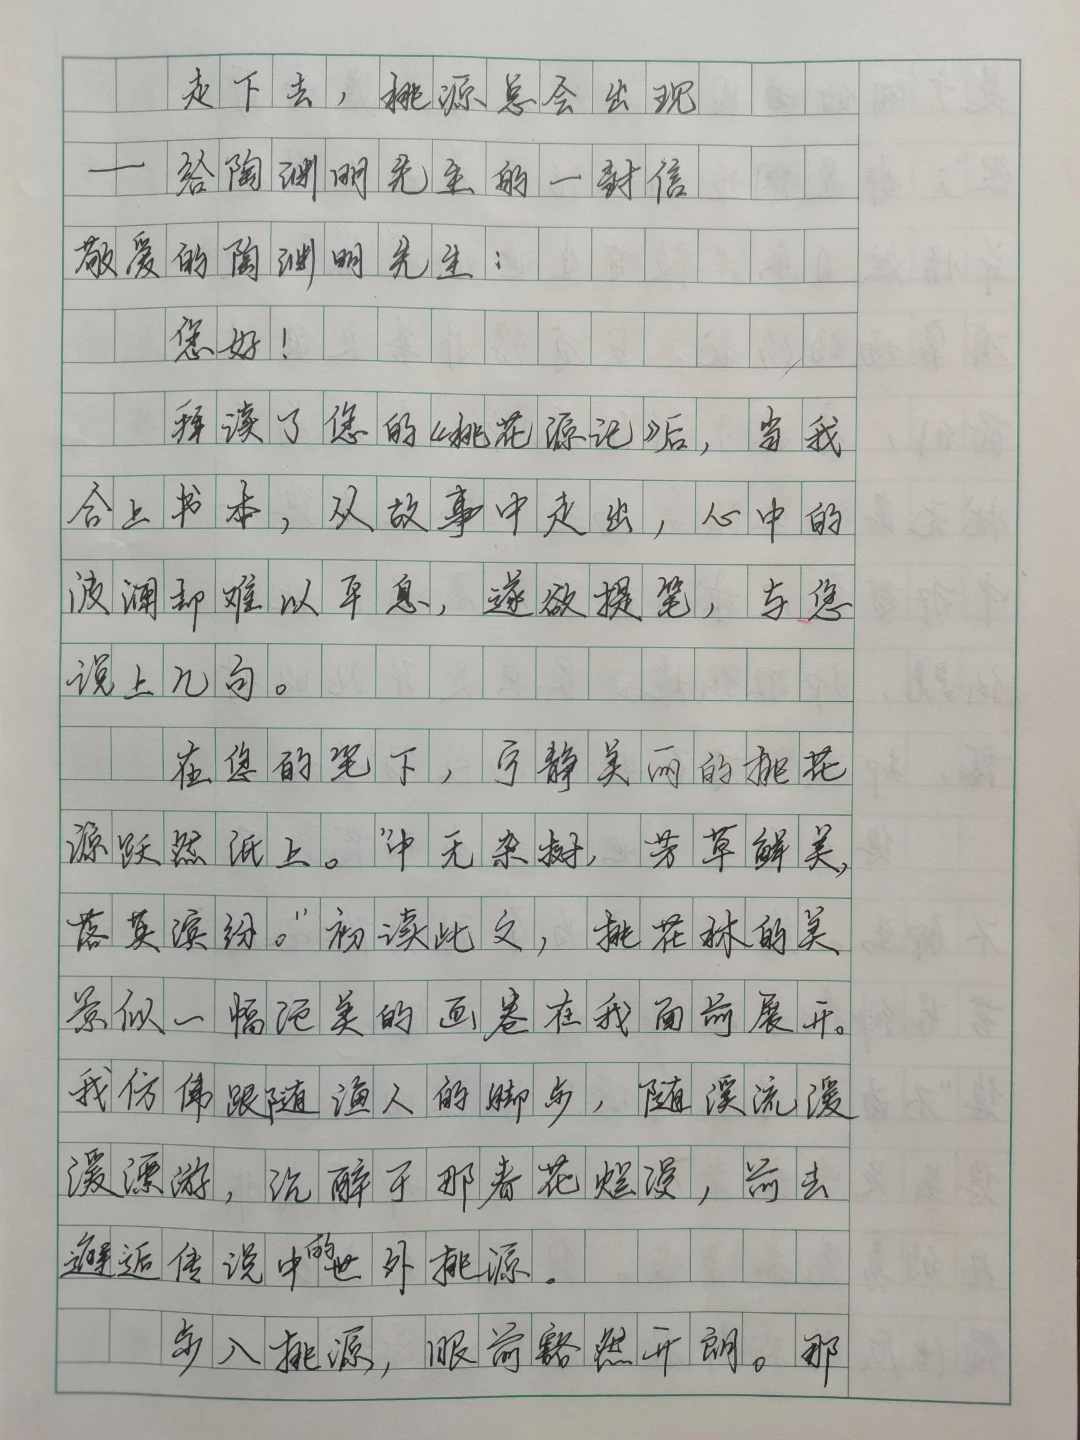 走下去，桃源总会出现
——给陶渊明先生的一封信
敬爱的陶渊明先生：
您好！
拜读了您的《桃花源记》后，当我
合上书本，从故事中走出，心中的
波澜却难以平息，遂欲提笔，与您
说上几句。
在您的笔下，宁静美丽的桃花
源跃然纸上。“中无杂树，芳草鲜美，
落英滨纷。”初读此文，桃花林的美
景似一幅绝美的画卷在我面前展开。
我仿佛跟随渔人的脚步，随溪流缓
缓漂游，沉醉于那春花烂漫，前去
邂逅传说中的世外桃源。
步入桃源，眼前豁然开朗。那